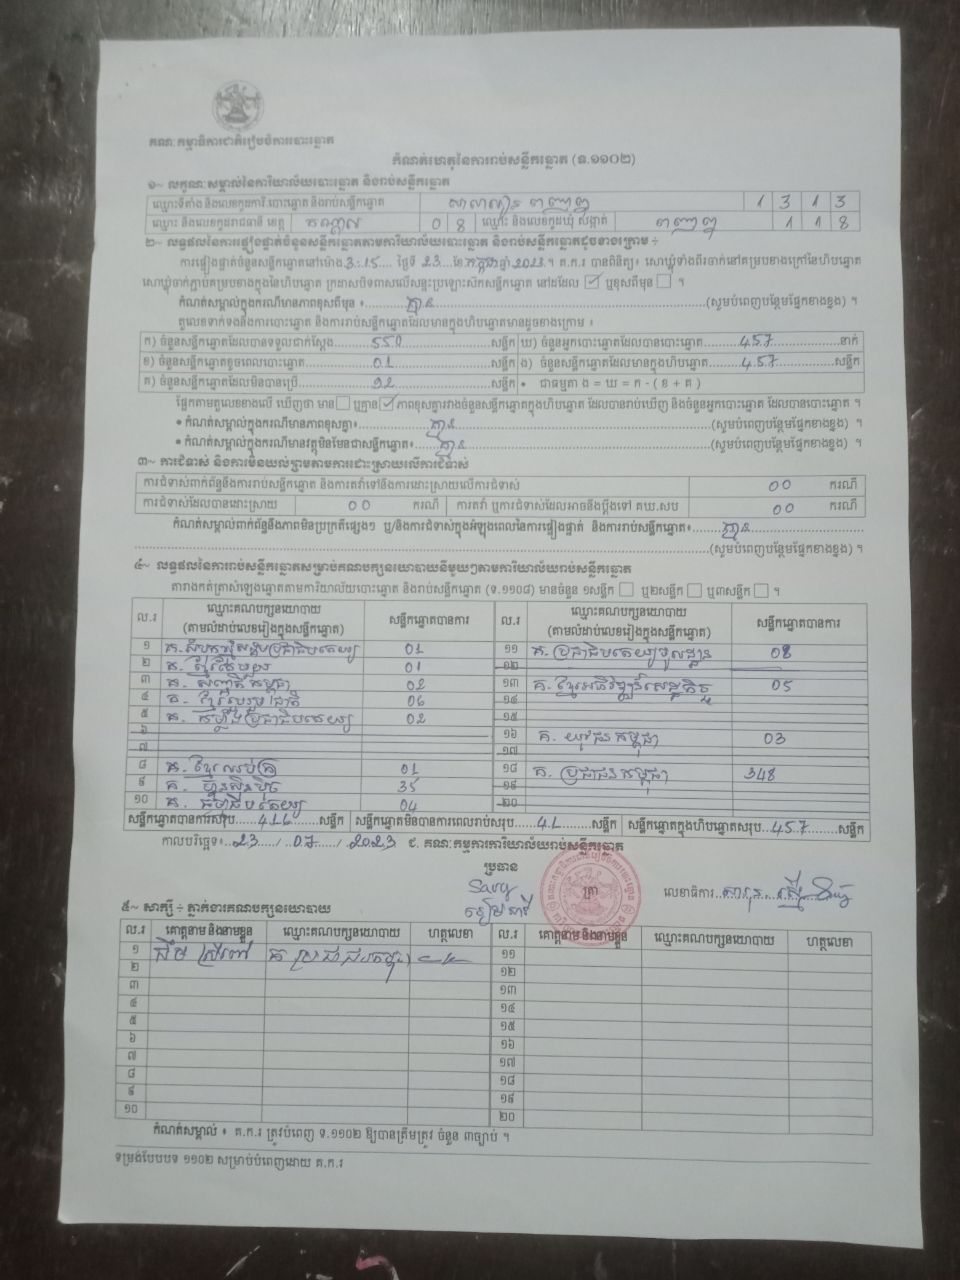 គណៈកម្មាធិការជាតិរៀបចំការបោះឆ្នោត
កំណត់ហេតុនៃការរាប់សន្លឹកឆ្នោត (ទ.១១០២)
១~ លក្ខណៈសម្គាល់នៃការិយាល័យបោះឆ្នោត និងរាប់សន្លឹកឆ្នោត
ឈ្មោះទីតាំង និងលេខកូដការិ.បោះឆ្នោត និងរាប់សន្លឹកឆ្នោត 1 3 1 3
ឈ្មោះ និងលេខកូដរាជធានី ខេត្ត កណ្តាល 0 8 ឈ្មោះ និងលេខកូដឃុំ សង្កាត់ 1 1 8
២~ លទ្ធផលនៃការផ្ទៀងផ្ទាត់ចំនួនសន្លឹកឆ្នោតតាមការិយាល័យបោះឆ្នោត និងរាប់សន្លឹកឆ្នោតដូចខាងក្រោម ÷
ការផ្ទៀងផ្ទាត់ចំនួនសន្លឹកឆ្នោតនៅម៉ោង 3:15 ថ្ងៃទី 23 ខែ កក្កដា ឆ្នាំ 2023។ គ.ក.រ បានពិនិត្យ៖ សោឃ្លុំទាំងពីរចាក់នៅគម្របខាងក្រៅនៃហិបឆ្នោត
សោឃ្លុំចាក់ភ្ជាប់គម្របខាងក្នុងនៃហិបឆ្នោត ក្រដាសបិទពាសលើសន្ទះប្រឡោះសិកសន្លឹកឆ្នោត នៅដដែល ☑ ឬខុសពីមុន ☐ ។
កំណត់សម្គាល់ក្នុងករណីមានភាពខុសពីមុន ៖ គ្មាន (សូមបំពេញបន្ថែមផ្នែកខាងខ្នង) ។
តួលេខទាក់ទងនឹងការបោះឆ្នោត និងការរាប់សន្លឹកឆ្នោតដែលមានក្នុងហិបឆ្នោតមានដូចខាងក្រោម ៖
ក) ចំនួនសន្លឹកឆ្នោតដែលបានទទួលជាក់ស្តែង 550 សន្លឹក ឃ) ចំនួនអ្នកបោះឆ្នោតដែលបានបោះឆ្នោត 457 នាក់
ខ) ចំនួនសន្លឹកឆ្នោតខូចពេលបោះឆ្នោត 01 សន្លឹក ង) ចំនួនសន្លឹកឆ្នោតដែលមានក្នុងហិបឆ្នោត 457 សន្លឹក
គ) ចំនួនសន្លឹកឆ្នោតដែលមិនបានប្រើ 92 សន្លឹក • ជាធម្មតា ង = ឃ = ក - ( ខ + គ )
ផ្អែកតាមតួលេខខាងលើ ឃើញថា មាន ☐ ឬគ្មាន ☑ ភាពខុសគ្នារវាងចំនួនសន្លឹកឆ្នោតក្នុងហិបឆ្នោត ដែលបានរាប់ឃើញ និងចំនួនអ្នកបោះឆ្នោត ដែលបានបោះឆ្នោត ។
• កំណត់សម្គាល់ក្នុងករណីមានភាពខុសគ្នា៖ គ្មាន (សូមបំពេញបន្ថែមផ្នែកខាងខ្នង) ។
• កំណត់សម្គាល់ក្នុងករណីមានវត្ថុមិនមែនជាសន្លឹកឆ្នោត៖ គ្មាន (សូមបំពេញបន្ថែមផ្នែកខាងខ្នង) ។
៣~ ការជំទាស់ និងការមិនយល់ព្រមតាមការដោះស្រាយលើការជំទាស់
ការជំទាស់ពាក់ព័ន្ធនឹងការរាប់សន្លឹកឆ្នោត និងការតវ៉ាទៅនឹងការដោះស្រាយលើការជំទាស់ 00 ករណី
ការជំទាស់ដែលបានដោះស្រាយ 00 ករណី ការតវ៉ា ឬការជំទាស់ដែលអាចនឹងប្តឹងទៅ គឃ.សប 00 ករណី
កំណត់សម្គាល់ពាក់ព័ន្ធនឹងភាពមិនប្រក្រតីផ្សេងៗ ឬ/និងការជំទាស់ក្នុងអំឡុងពេលនៃការផ្ទៀងផ្ទាត់ និងការរាប់សន្លឹកឆ្នោត៖ គ្មាន
(សូមបំពេញបន្ថែមផ្នែកខាងខ្នង) ។
៤~ លទ្ធផលនៃការរាប់សន្លឹកឆ្នោតសម្រាប់គណបក្សនយោបាយនីមួយៗតាមការិយាល័យរាប់សន្លឹកឆ្នោត
តារាងកត់ត្រាសំឡេងឆ្នោតតាមការិយាល័យបោះឆ្នោត និងរាប់សន្លឹកឆ្នោត (ទ.១១០៨) មានចំនួន ១សន្លឹក ☐ ឬ២សន្លឹក ☐ ឬ៣សន្លឹក ☐ ។
ល.រ ឈ្មោះគណបក្សនយោបាយ (តាមលំដាប់លេខរៀងក្នុងសន្លឹកឆ្នោត) សន្លឹកឆ្នោតបានការ ល.រ ឈ្មោះគណបក្សនយោបាយ (តាមលំដាប់លេខរៀងក្នុងសន្លឹកឆ្នោត) សន្លឹកឆ្នោតបានការ
១ 01 ១១ គ. ប្រជាធិបតេយ្យមូលដ្ឋាន 08
២ 01 ១២
៣ គ. សញ្ជាតិកម្ពុជា 02 ១៣ គ. ខ្មែរអភិវឌ្ឍន៍សេដ្ឋកិច្ច 05
៤ គ. ខ្មែររួបរួមជាតិ 06 ១៤
៥ គ. កម្លាំងប្រជាធិបតេយ្យ 02 ១៥
៦ ១៦ គ. យុវជនកម្ពុជា 03
៧ ១៧
៨ 01 ១៨ គ. ប្រជាជនកម្ពុជា 348
៩ គ. ហ៊្វុនស៊ិនប៉ិច 35 ១៩
១០ 04 ២០
សន្លឹកឆ្នោតបានការសរុប សន្លឹក សន្លឹកឆ្នោតមិនបានការពេលរាប់សរុប សន្លឹក សន្លឹកឆ្នោតក្នុងហិបឆ្នោតសរុប 457 សន្លឹក
កាលបរិច្ឆេទ៖ 23 / 07 / 2023 ជ. គណៈកម្មការការិយាល័យរាប់សន្លឹកឆ្នោត
ប្រធាន
ត្រា
លេខាធិការ
៥~ សាក្សី ÷ ភ្នាក់ងារគណបក្សនយោបាយ
ល.រ គោត្តនាម និងនាមខ្លួន ឈ្មោះគណបក្សនយោបាយ ហត្ថលេខា ល.រ គោត្តនាម និងនាមខ្លួន ឈ្មោះគណបក្សនយោបាយ ហត្ថលេខា
១ ១១
២ ១២
៣ ១៣
៤ ១៤
៥ ១៥
៦ ១៦
៧ ១៧
៨ ១៨
៩ ១៩
១០ ២០
កំណត់សម្គាល់ ៖ គ.ក.រ ត្រូវបំពេញ ទ.១១០២ ឱ្យបានត្រឹមត្រូវ ចំនួន ៣ច្បាប់ ។
ទម្រង់បែបបទ ១១០២ សម្រាប់បំពេញដោយ គ.ក.រ